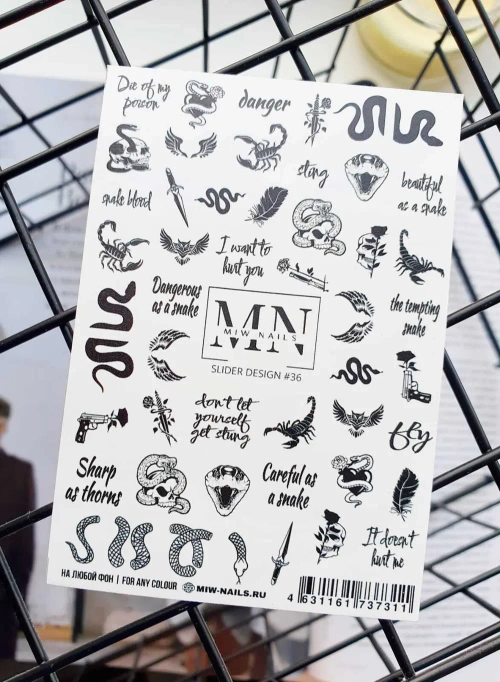 Die of my
poison
danger
sting
beautiful
as a snake
snake blood
I want to
hurt you
Dangerous
as a snake
the tempting
snake
MN
MIW NAILS
SLIDER DESIGN #36
don't let
yourself
get stung
fly
Sharp
as thorns
Careful as
a snake
It doesn't
hurt me
НА ЛЮБОЙ ФОН | FOR ANY COLOUR MIW-NAILS.RU
4 631161 737311